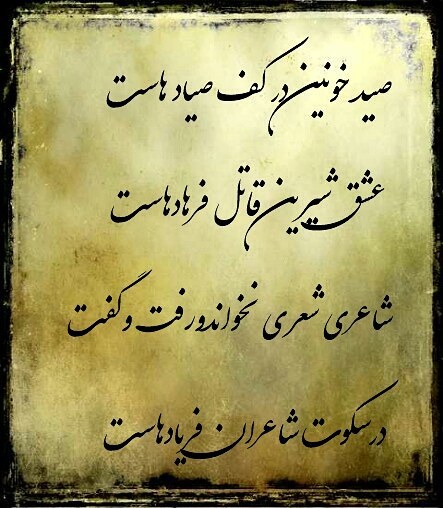 صید خونین در کف صیاد هاست
عشق شیرین قاتل فرهادهاست
شاعری شعری نخواند و رفت و گفت
در سکوت شاعران فریادهاست